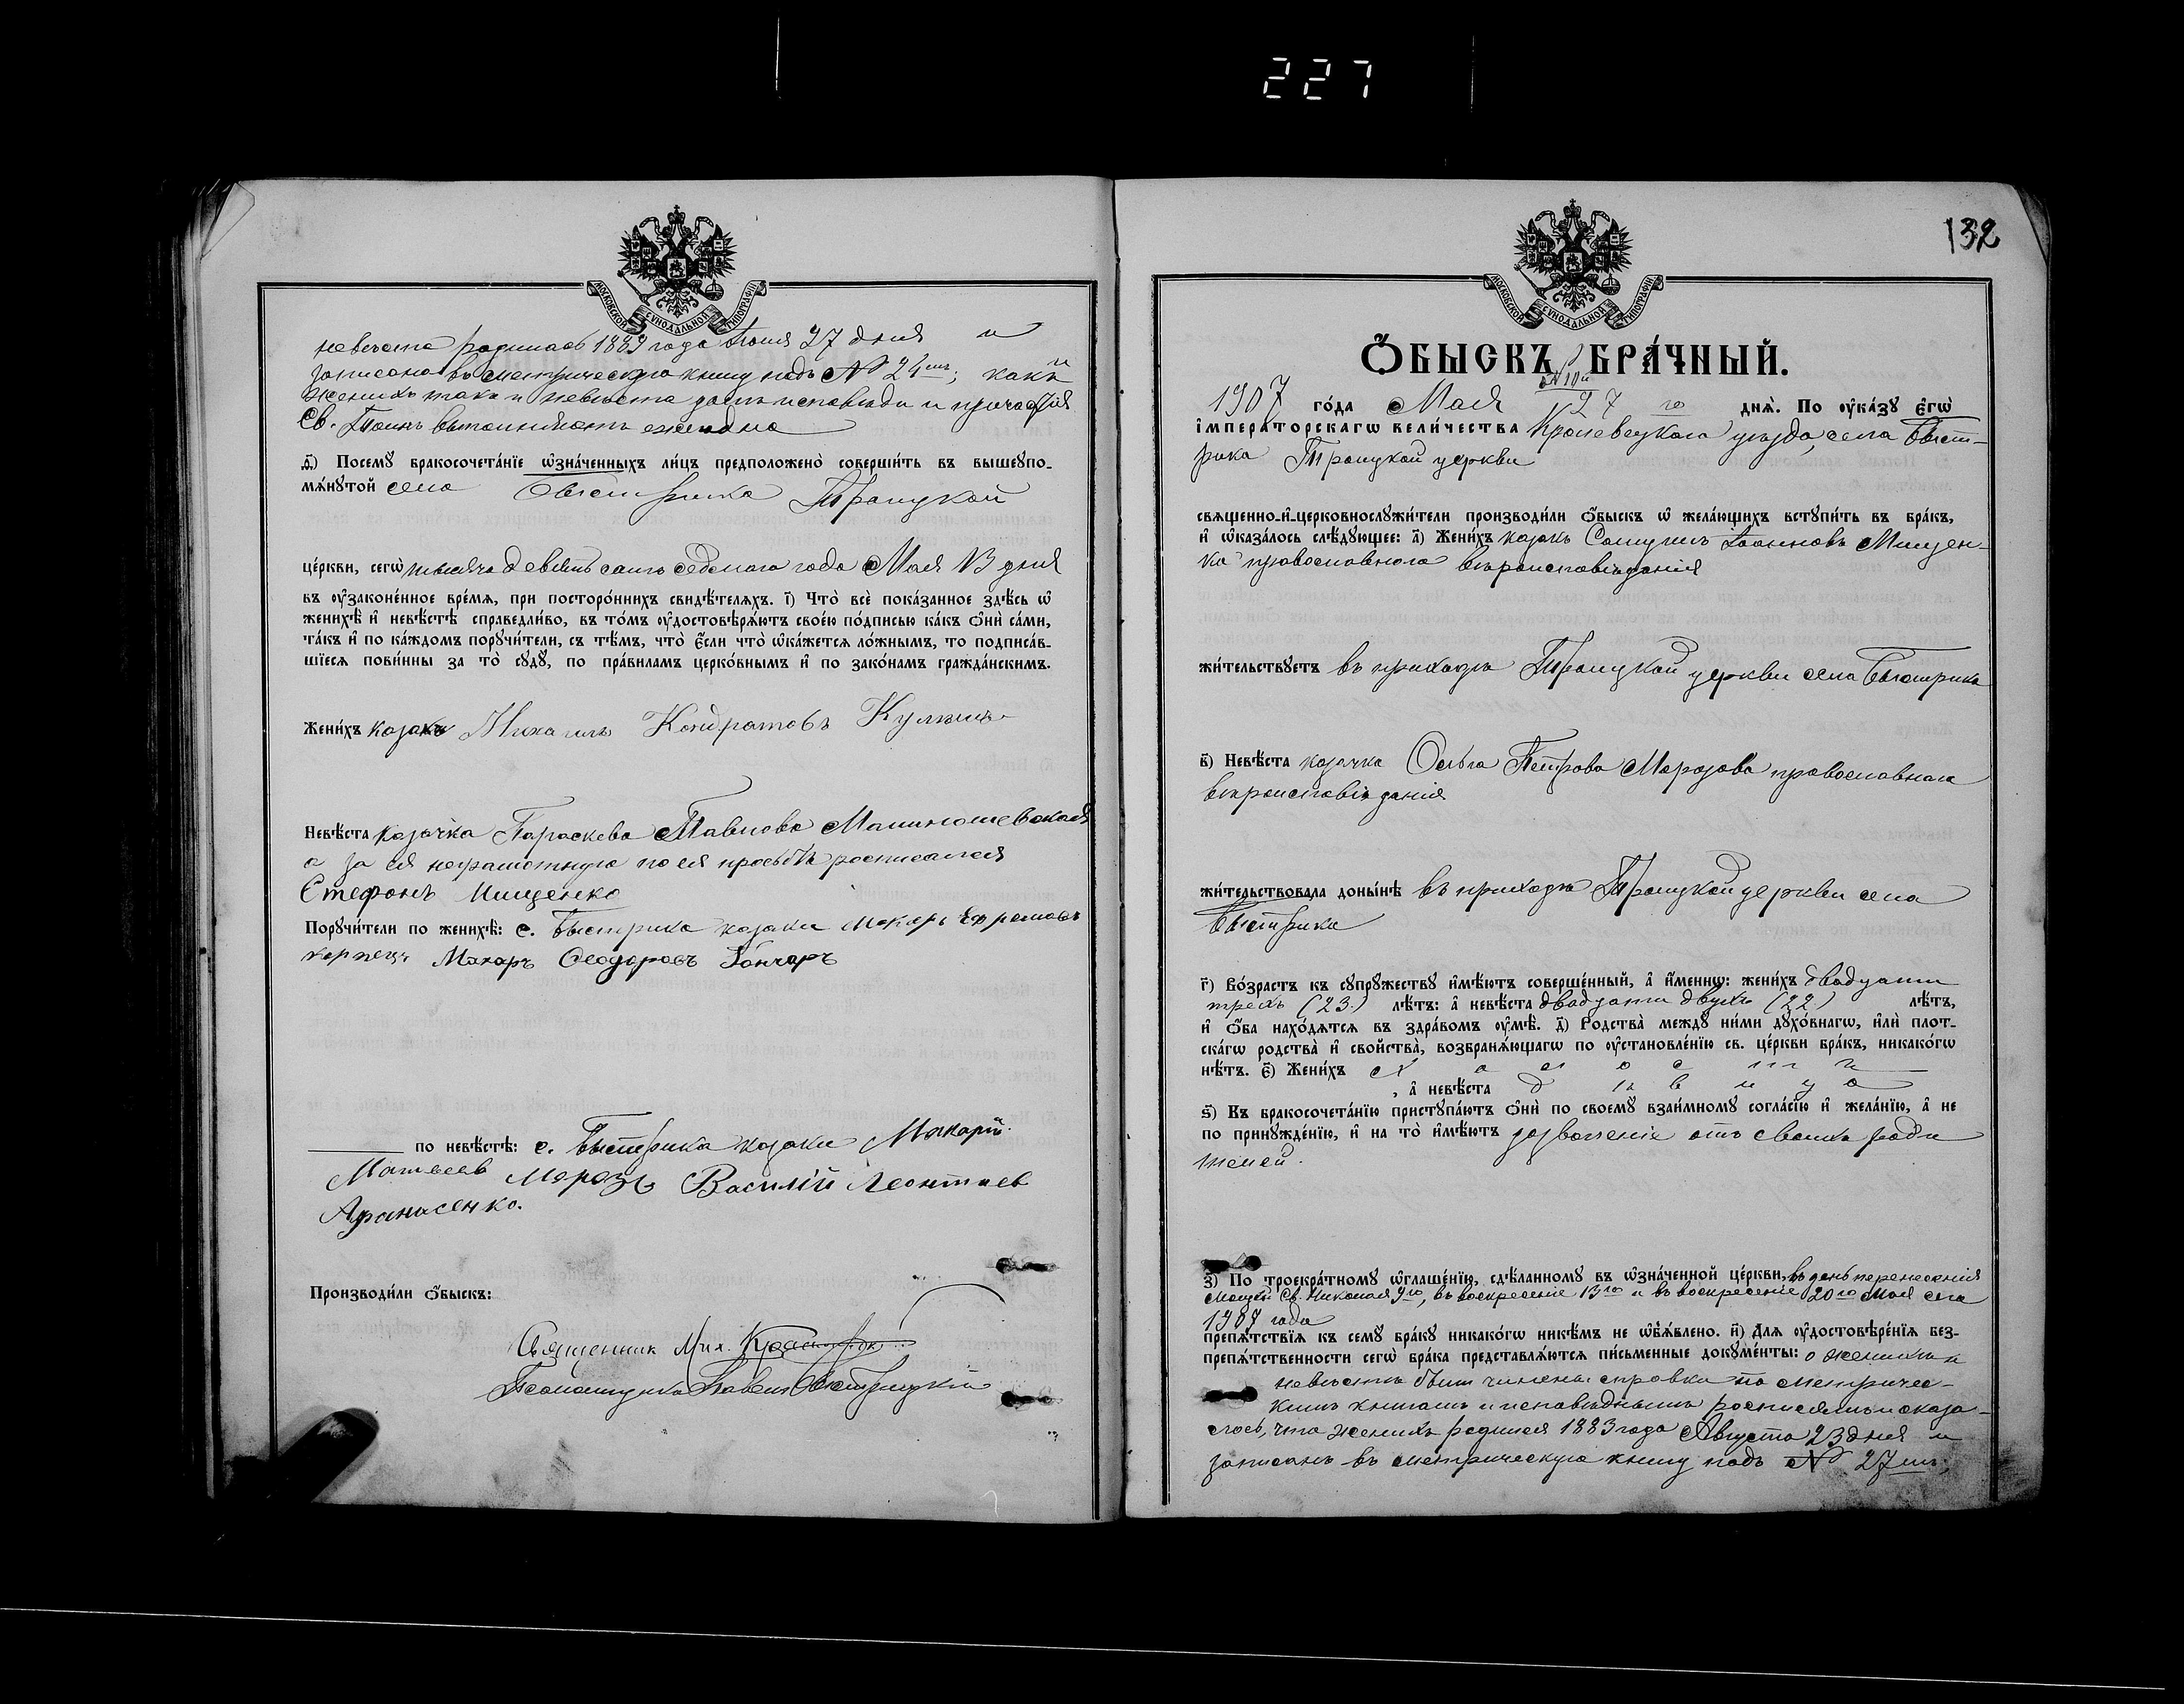 227
МОСКОВСКОЙ СѴНОДАЛЬНОЙ ТИПОГРАФІИ
невѣста родилась 1889 года Іюня 27 дня и
записана въ метрическую книгу подъ № 24мъ; какъ
женихъ такъ и невѣста долгъ исповѣди и причастія
Св. Таинъ выполняютъ ежегодно
д҃) Посемꙋ бракосочета́нїе ѡ҆зна́ченныхъ ли́цъ предположено̀ соверши́ть въ вышеꙋпо-
мѧ́нꙋтой села Быстрика Троицкой
це́ркви, сегѡ̀ тысяча девятьсотъ седьмого года Мая 13 дня
въ ᲂу҆зако́ненное вре́мѧ, при посторо́ннихъ свидѣ́телѧхъ. і҃) Что̀ всѐ пока́занное здѣ́сь ѡ҆
женихѣ̀ и҆ невѣ́стѣ справедли́во, въ то́мъ ᲂу҆достовѣрѧ́ютъ свое́ю по́дписью ка́къ ѻ҆нѝ са́ми,
та́къ и҆ по ка́ждомъ порꙋчи́тели, съ тѣ́мъ, что̀ є҆́сли что̀ ѡ҆ка́жетсѧ ло́жнымъ, то подписа́в-
шїесѧ пови́нны за то̀ сꙋдꙋ̀, по пра́виламъ церко́внымъ и҆ по зако́намъ гражда́нскимъ.
Жени́хъ казакъ Михаилъ Кондратовъ
Невѣ́ста казачка Параскева Павлова
а за ея неграмотную по ея просьбѣ росписался
Стефанъ Мищенко
Порꙋчи́тели по женихѣ̀: с. Быстрика казаки Макаръ Ефремовъ
Макаръ Ѳеодоровъ Гончаръ
по невѣ́стѣ: с. Быстрика казаки Макарій
Матвеев Морозъ Василій Леонтиев
Афанасенко.
Производи́ли ѻ҆́быскъ:
Священник Мих.
Псаломщикъ Павелъ Быстрицкій
МОСКОВСКОЙ СѴНОДАЛЬНОЙ ТИПОГРАФІИ
132
Ѻ҆́БЫСКЪ БРА́ЧНЫЙ.
№ 10й
1907 го́да Мая 27 го днѧ̀. По ᲂу҆ка́зꙋ є҆гѡ̀
і҆мпера́торскагѡ вели́чества Кролевецкаго уѣзда, села Быст-
рика Троицкой церкви
свѧще́нно-и҆-церковнослꙋжи́тели производи́ли ѻ҆́быскъ ѡ҆ жела́ющихъ встꙋпи́ть въ бра́къ,
и҆ ѡ҆каза́лось слѣ́дꙋющее: а҃) Жени́хъ казакъ Самуилъ Іоанновъ Мищен-
ко православнаго вѣроисповѣданія
жи́тельствꙋетъ въ приходѣ Троицкой церкви села Быстрика
в҃) Невѣ́ста казачка Ольга Петрова Морозова православнаго
вѣроисповѣданія
жи́тельствовала доны́нѣ въ приходѣ Троицкой церкви села
Быстрика
г҃) Во́зрастъ къ сꙋпрꙋ́жествꙋ и҆мѣ́ютъ соверше́нный, а҆ и҆́меннѡ: жени́хъ двадцати
трехъ (23.) лѣ́тъ: а҆ невѣ́ста двадцати двухъ (22) лѣ́тъ,
и҆ ѻ҆́ба нахо́дѧтсѧ въ здра́вомъ ᲂу҆мѣ̀. д҃) Родства̀ междꙋ̀ ни́ми дꙋхо́внагѡ, и҆лѝ плот-
ска́гѡ родства̀ и҆ сво́йства̀, возбранѧ́ющагѡ по ᲂу҆становле́нїю св. це́ркви бра́къ, никако́гѡ
нѣ́тъ. є҃) Жени́хъ холостъ
, а҆ невѣ́ста дѣвица
ѕ҃) Къ бракосочета́нїю пристꙋпа́ютъ ѻ҆нѝ по своемꙋ̀ взаи́мномꙋ согла́сїю и҆ жела́нїю, а҆ не
по принꙋжде́нїю, и҆ на то̀ и҆мѣ́ютъ дозволеніе отъ своихъ роди
телей.
з҃) По троекра́тномꙋ ѡ҆глаше́нїю, сдѣ́ланномꙋ въ ѡ҆зна́ченной це́ркви, въ день перенесенія
Мощей Св. Николая 9го, въ воскресеніе 13го и въ воскресеніе 20го Мая сего
1907 года
препѧ́тствїѧ къ семꙋ̀ бра́кꙋ никако́гѡ никѣ́мъ не ѡ҆б̾ѧ́влено. и҃) Длѧ̀ ᲂу҆достовѣре́нїѧ без-
препѧ́тственности сегѡ̀ бра́ка представлѧ́ютсѧ пи́сьменные докꙋме́нты: о женихѣ и
невѣстѣ была чинена справка по метричес-
кимъ книгамъ и исповѣднымъ росписямъ и оказа-
лось, что женихъ родился 1883 года Августа 23 дня и
записанъ въ метрическую книгу подъ № 27мъ;